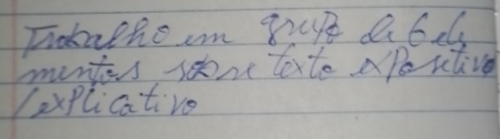 Trabalho em grupo de 6 ele
mentos sobre texto expositivo
/explicativo